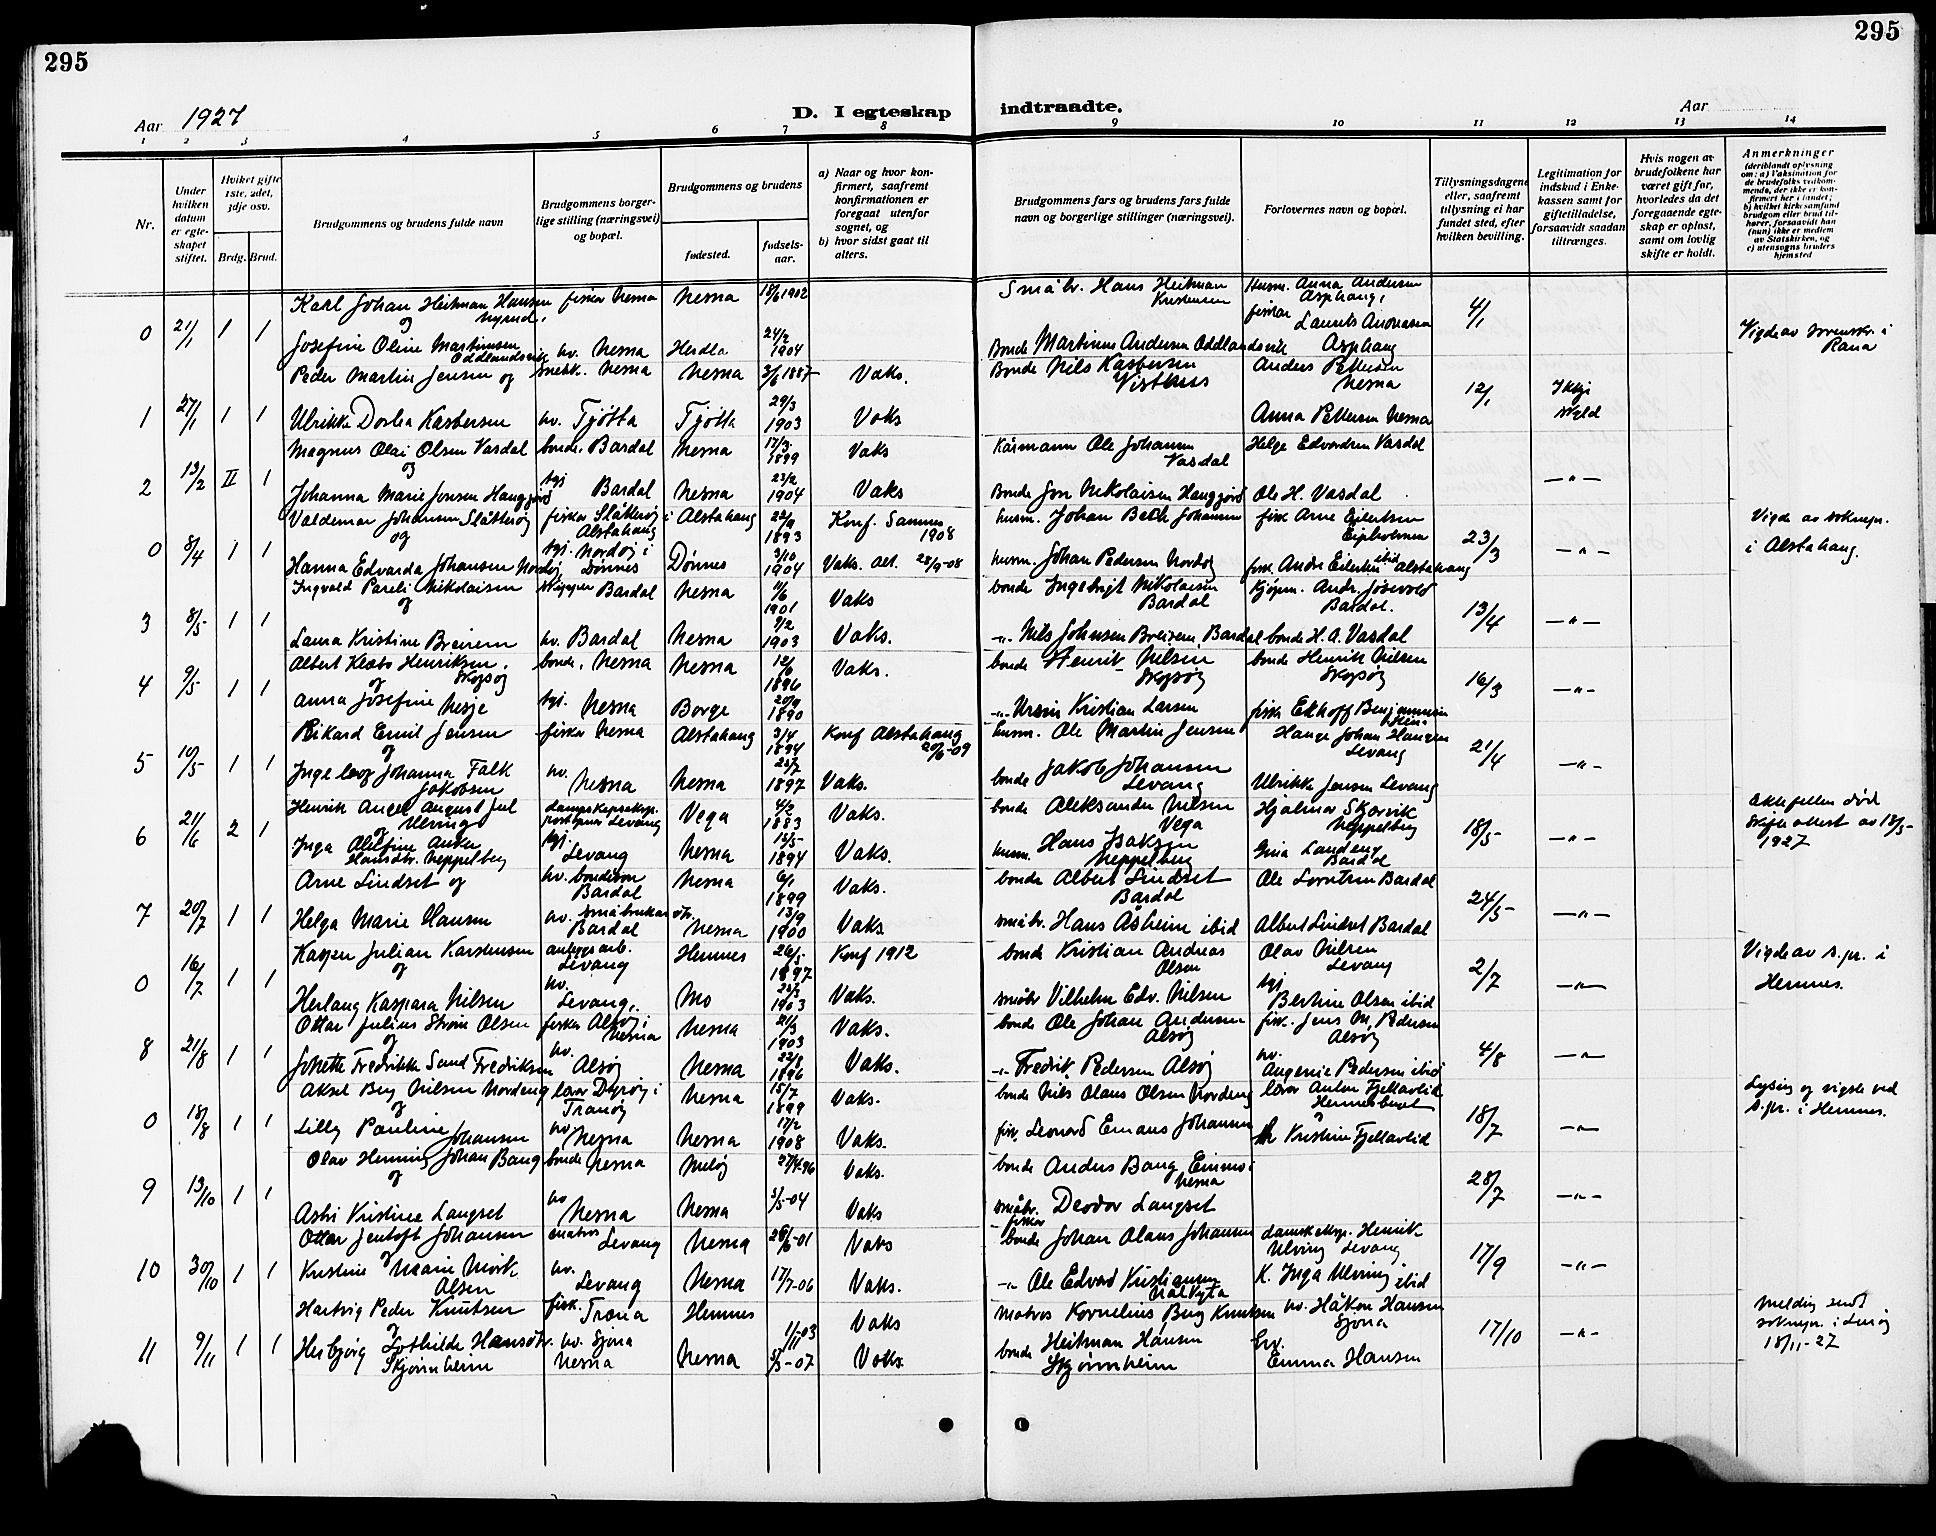 295
295
Aar 1927
D. I egteskap indtraadte.
Aar
1 2 3 4 5 6 7 8 9 10 11 12 13 14
Nr.
Under hvilken datum er egteskapet stiftet.
Hvilket gifte 1ste, 2det, 3dje osv.
Brdg. Brud.
Brudgommens og brudens fulde navn
Brudgommens borgerlige stilling (næringsvei) og bopæl.
Brudgommens og brudens
fødested.
fødselsaar.
a) Naar og hvor konfirmert, saafremt konfirmationen er foregaat utenfor sognet, og
b) hvor sidst gaat til alters.
Brudgommens fars og brudens fars fulde navn og borgerlige stillinger (næringsvei).
Forlovernes navn og bopæl.
Tillysningsdagene eller, saafremt tillysning ei har fundet sted, efter hvilken bevilling.
Legitimation for indskud i Enkekassen samt for giftetilladelse, forsaavidt saadan tiltrænges.
Hvis nogen av brudefolkene har været gift før, hvorledes da det foregaaende egteskap er opløst, samt om lovlig skifte er holdt.
Anmerkninger
0 21/1 1 1 Karl Johan Heitman Hansen og fisker Nesna Nesna 18/6 1902 Småbr. Hans Heitman Kristensen Husm. Anna Andersen Asphaug, 4/1 Vigde av sorenskr. i Rana
Josefine Oline Martinsen Oddlandsvik hv. Nesna Herdla 24/2 1904 Bonde Martinus Andersen Oddlandsvik fisker Laurits Asphaug
1 27/1 1 1 Peder Martin Jensen og Nesna Nesna 3/6 1887 Vaks. Anders Pettersen Nesna 12/1 Ikkje skyld
Ulrikke Dortea Kasbersen hv. Tjøtta Tjøtta 29/3 1903 Vaks Bonde Nils Kasbersen Visthus Anna Pettersen Nesna
2 13/2 II 1 Magnus Olai Olsen Vasdal og bonde, Bardal Nesna 17/3 1899 Vaks Kårmann Ole Johansen Vasdal Helge Edvardsen Vasdal —"—
Johanna Marie Jonsen Haugjord tgj Bardal Nesna 23/2 1904 Vaks Bonde Jon Nikolaisen Haugjord Ole H. Vasdal
0 8/4 1 1 Valdemar Johansen Slåtterøy og fisker Slåtterøy i Alstahaug Alstahaug 22/9 1893 Konf. Sannes 1908 husm. Johan Johansen fisk Arne Eilertsen 23/3 —"— Vigde av soknepr. i Alstahaug.
Hanna Edvarda Johansen Nordøy tgj. Nordøy i Dønnes Dønnes 3/10 1904 Vaks. husm. Johan Pedersen Nordøy fisk. Andr. Eilertsen ibid Alstahaug
3 8/5 1 1 Ingvald Pareli Nikolaisen og skipper Bardal Nesna 11/6 1901 Vaks bonde Ingebrigt Nikolaisen Bardal Kjøpm. Andr. Jøsevold Bardal. 13/4 —"—
Laura Kristine Breirem hv. Bardal Nesna 9/2 1903 Vaks. —"— Nils Johnsen Breirem, Bardal bonde H. A. Vasdal
4 9/5 1 1 Albert Henriksen Skogsøy og bonde, Nesna Nesna 12/6 1896 Vaks. bonde Henrik Nilsen Skogsøy bonde Henrik Nilsen Skogsøy 16/3 —"—
Anna Josefine Nesje tgj. Nesna Borge 20/9 1890 —"— Kristian Larsen fisker Ekhoff Benjaminsen
5 10/5 1 1 Rikard Emil Jensen og fisker Nesna Alstahaug 3/4 1894 Konf Alstahaug 20/6-09 husm. Ole Martin Jensen Hauge Johan Hansen Levang 21/4 —"—
Ingeborg Johanna Falk Jakobsen hv. Nesna Nesna 23/7 1897 Vaks. bonde Jakob Johansen Levang Ulrikke Jensen Levang
6 21/6 2 1 Henrik August Juel Ulving og Levang Vega 4/2 1883 Vaks. bonde Aleksander Nilsen Vega Hjalmar Skarvik Neppelberg 18/5 —"— Ektefellen død skifteattest av 18/5-1927
Inga Hansdtr. Neppelberg tgj. Levang Nesna 15/5 1894 Vaks. husm. Hans Isaksen Neppelberg Gina Landeng Bardal
7 20/7 1 1 Arne Lindset og hv. bondesøn Bardal Nesna 6/1 1899 Vaks. bonde Albert Lindset Bardal Ole Lorntsen Bardal 24/5 —"—
Helga Marie Hansen hv. småbrukardtr. Bardal Nesna 13/9 1900 Vaks småbr. Hans Åsheim ibid Albert Lindset Bardal
0 16/7 1 1 Kasper Julian Karstensen og anleggsarb. Levang Hemnes 26/5 1897 Konf 1912 bonde Kristian Andreas Olsen Olav Nilsen Levang 2/7 —"— Vigde av s.pr. i Hemnes.
Herlaug Kaspara Nilsen hv. Levang, Mo 1903 Vaks. småbr Vilhelm Edv. Nilsen tgj Bertine Olsen ibid
8 21/8 1 1 Ottar Julius Strøm Olsen og fisker Alsøy i Nesna Nesna 21/3 1903 Vaks. bonde Ole Johan Andersen Alsøy fisk. Jens M. Pedersen Alsøy 4/8 —"—
Jonette Fredrikke Sand Fredriksen hv. Alsøy Nesna 22/8 1896 Vaks. —"— Fredrik Pedersen Alsøy hv. Augenie Pedersen ibid
0 18/8 1 1 Aksel Berg Nilsen Nordeng og lærer Dyrøy i Tranøy Nesna 15/7 1899 Vaks. bonde Nils Olaus Olsen Nordeng lærer Anton Fjellavlid Hemnesberget 18/7 —"— Lysing og vigsle ved s.pr. i Hemnes.
Lilly Pauline Johansen hv Nesna Nesna 17/2 1908 Vaks. fisk. Leonard Emaus Johansen fr Kristine Fjellavlid
9 13/10 1 1 Olav Henning Johan Bang og bonde Nesna Meløy 27/4 96 Vaks. bonde Anders Bang Nesna 28/7 —"—
Astri Kristine Langset hv Nesna Nesna 3/5-04 Vaks småbr. Deodor Langset
10 30/10 1 1 Ottar Jentoft Johansen og matros Levang Nesna 26/6-01 Vaks fisker bonde Johan Olaus Johansen dampsk.eksp. Henrik Ulving Levang 17/9 —"—
Kristine Marie Mørk Olsen hv. Levang Nesna 17/7-06 Vaks. —"— Ole Edvard Kristiansen K. Inga Ulving ibid
11 9/11 1 1 Hartvig Peder Knutsen og fisk. Træna Hemnes 1/11-03 Vaks Matros Kornelius Berg Knutsen hv. Håkon Hansen Sjona 17/10 —"— Melding sendt soknepr. i Lurøy 18/11-27
Herbjørg Lothilde Hansdtr. Skjørnheim hv. Sjona Nesna Nesna 5/3-07 Vaks. bonde Heitman Hansen Skjørnheim hv. Emma Hansen